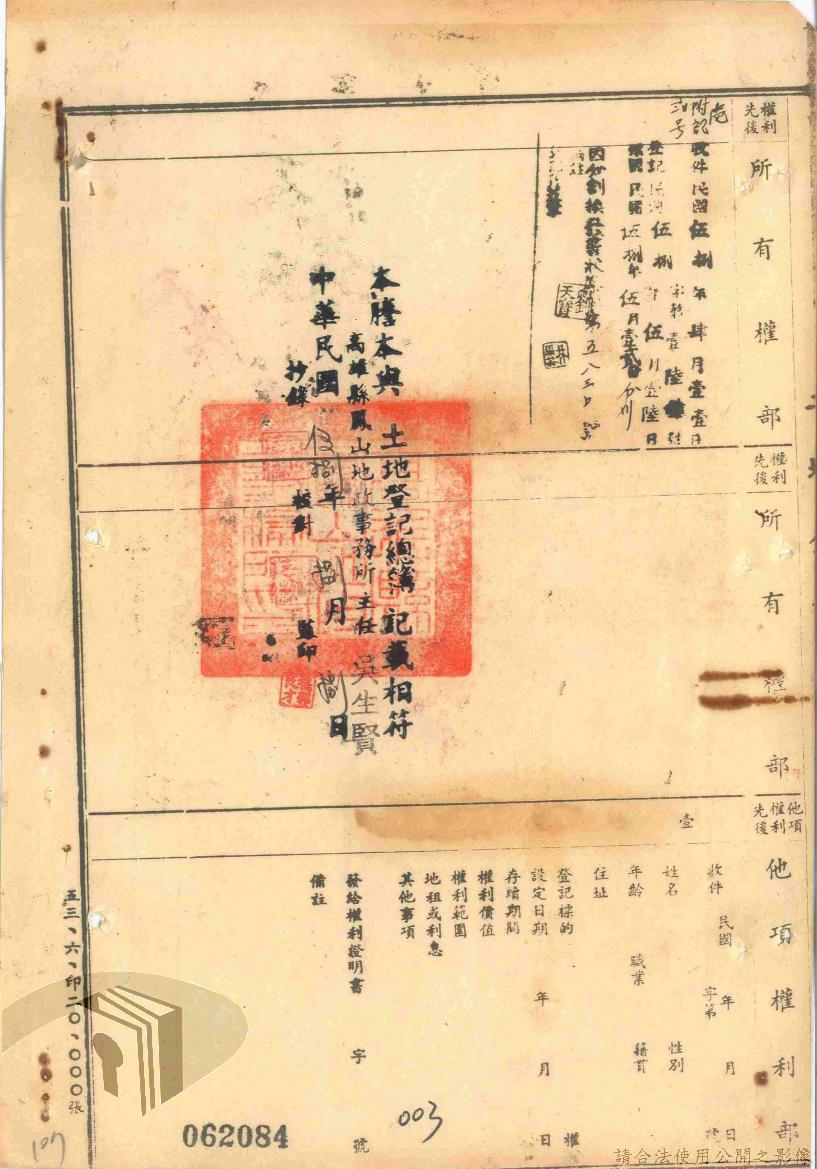 權利先後
所有權部
附記
壹
弍号
收件民國伍捌年肆月壹壹日
字第壹陸
號
登記民國伍捌年伍月壹陸日
民國伍捌年伍月
因分割換
五八三
權利先後
所有權部
本謄本與土地登記總簿記載相符
高雄縣鳳山地政事務所主任吳生賢
中華民國伍捌年捌月捌日
抄錄
校對
監印
他項權利先後
他項權利部
壹
收件 民國 年 月 日
字第 號
姓名 性別
年齡 職業 籍貫
住址
登記標的 權
設定日期 年 月 日
存續期間
權利價值
權利範圍
地租或利息
其他事項
發給權利證明書 字 號
備註
五三、六、印二〇、〇〇〇張
003
062084
107
請合法使用公開之影像